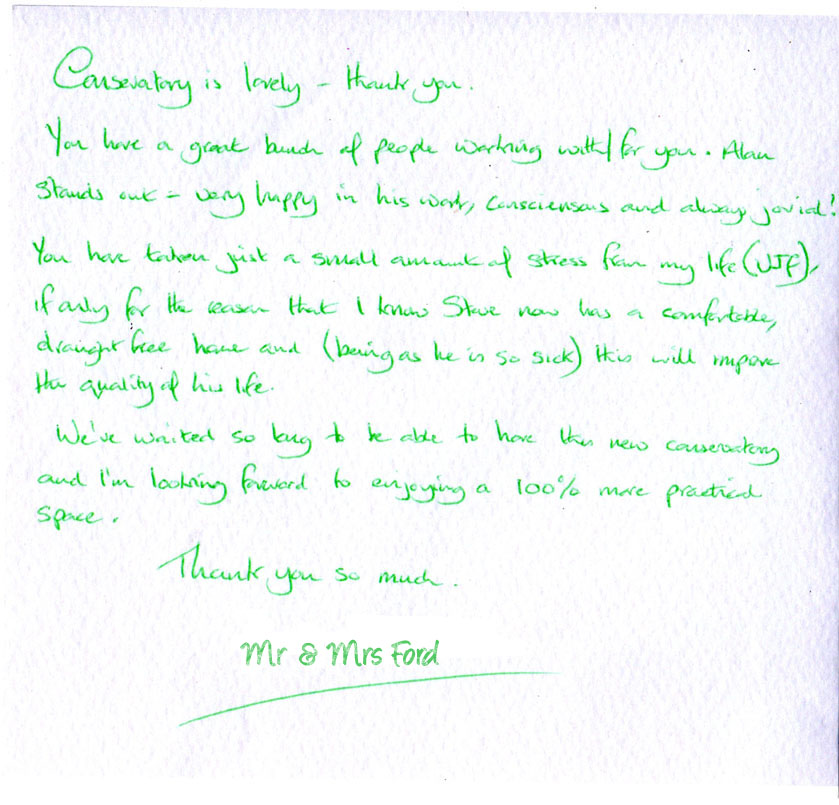 Conservatory is lovely - thank you.
You have a great bunch of people working with/for you. Alan
stands out - very happy in his work, consciensous and always jovial!
You have taken just a small amount of stress from my life
if only for the reason that I know Steve now has a comfortable,
draught free home and (being as he is so sick) this will improve
the quality of his life.
We've waited so long to be able to have this new conservatory
and I'm looking forward to enjoying a 100% more practical
space.
Thank you so much.
Mr & Mrs Ford